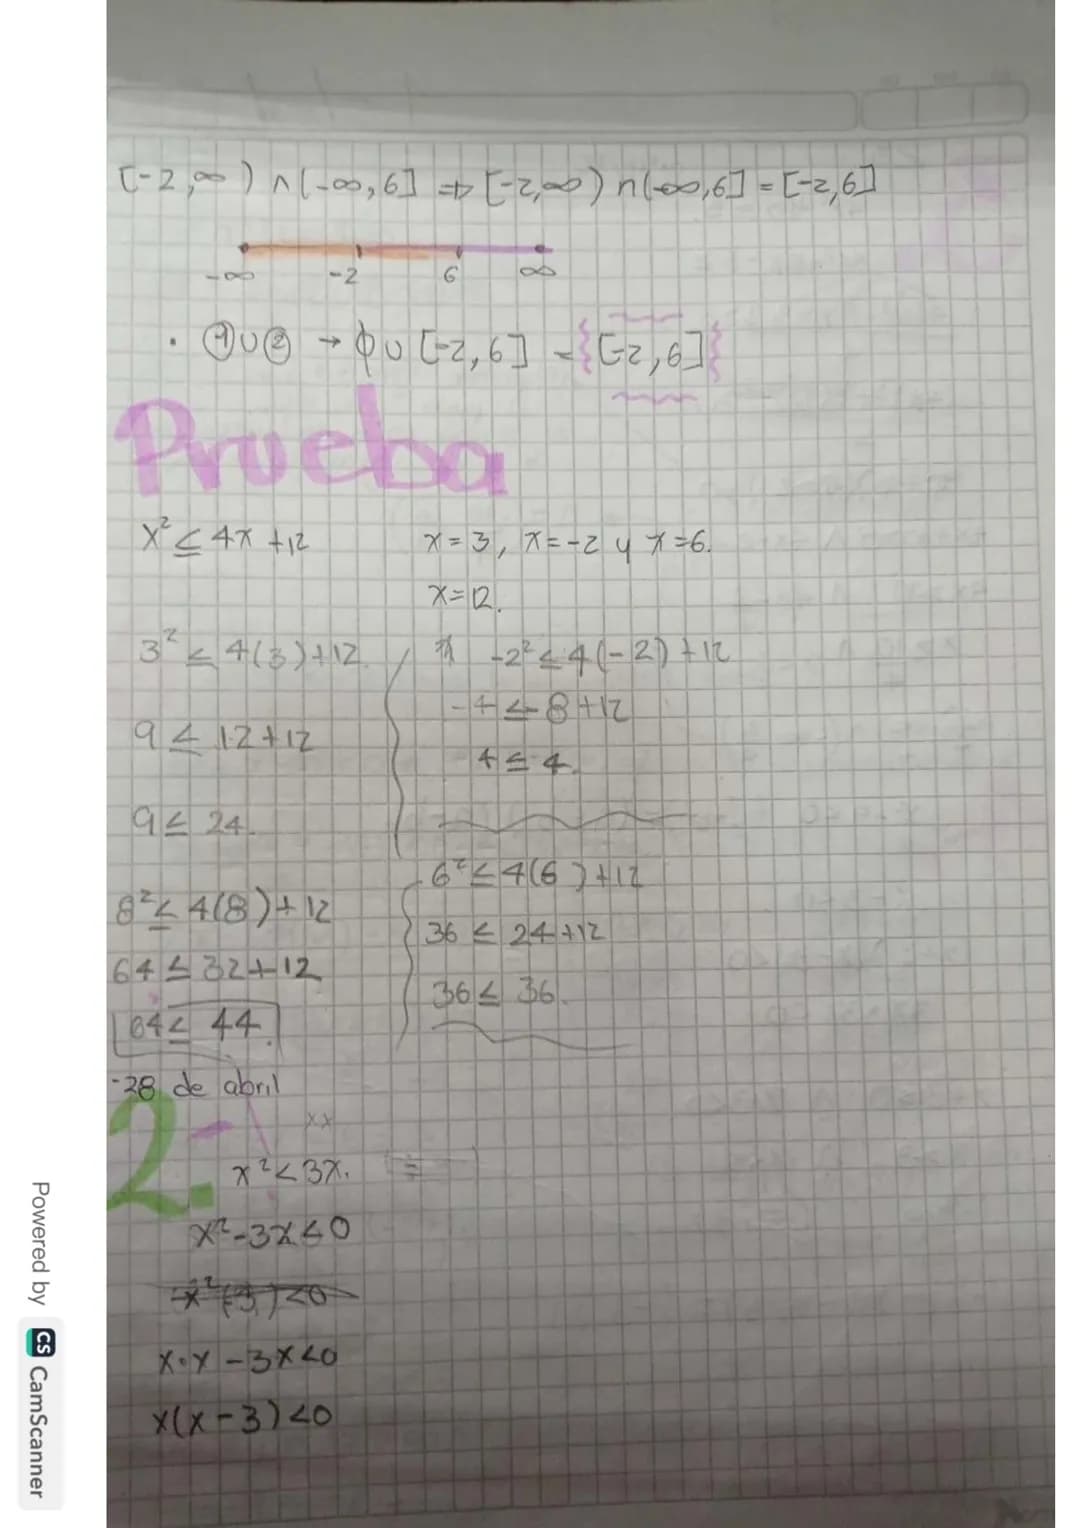 [-2,∞) ∩ (-∞,6] ⇒ [-2,∞) ∩ (-∞,6] = [-2,6]
-∞ -2 6 ∞
· ① ∪ ② → ϕ ∪ [-2,6] = {[-2,6]}
Prueba
x² ≤ 4x + 12
x = 3, x = -2 y x = 6.
x = 12.
3² ≤ 4(3)+12
9 ≤ 12+12
9 ≤ 24.
-2² ≤ 4(-2)+12
-4 ≤ -8+12
4 ≤ 4.
8² ≤ 4(8)+12
64 ≤ 32+12
64 ≤ 44.
6² ≤ 4(6)+12
36 ≤ 24+12
36 ≤ 36.
-28 de abril
2.-
xx
x² < 3x.
x²-3x<0
x·x -3x<0
x(x-3)<0
Powered by CS CamScanner